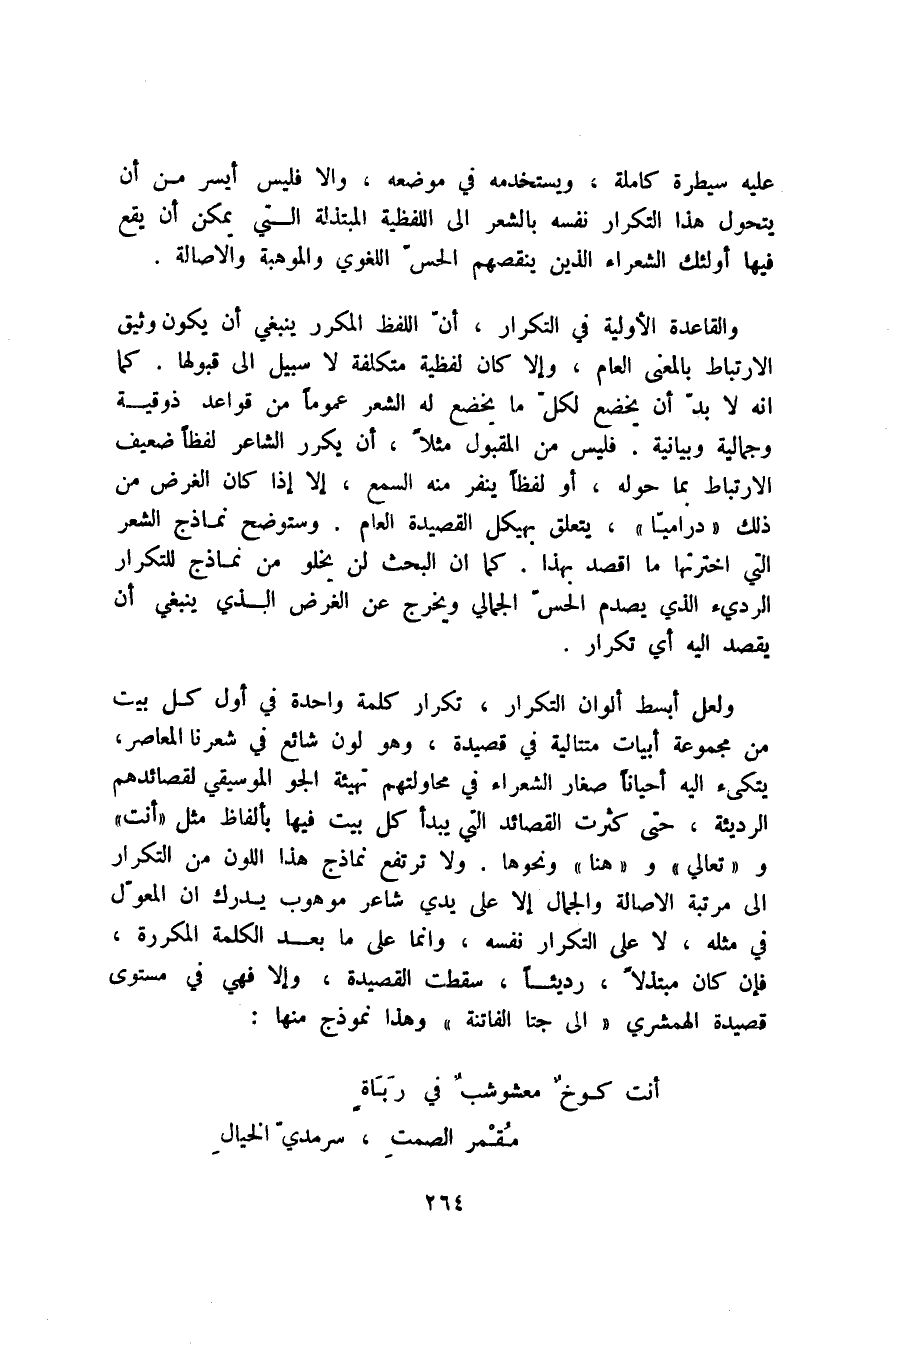 عليه سيطرة كاملة ، ويستخدمه في موضعه ، والا فليس أيسر مـن أن
يتحول هذا التكرار نفسه بالشعر الى اللفظية المبتذلة الـتي يمكن أن يقع
فيها أولئك الشعراء الذين ينقصهم الحسّ اللغوي والموهبة والاصالة .
والقاعدة الأولية في التكرار ، أنّ اللفظ المكرر ينبغي أن يكون وثيق
الارتباط بالمعنى العام ، وإلا كان لفظية متكلفة لا سبيل الى قبولها . كما
انه لا بدّ أن يخضع لكلّ ما يخضع له الشعر عموماً من قواعد ذوقيـة
وجمالية وبيانية . فليس من المقبول مثلاً ، أن يكرر الشاعر لفظاً ضعيف
الارتباط بما حوله ، أو لفظاً ينفر منه السمع ، إلا إذا كان الغرض من
ذلك « دراميّا » ، يتعلق بهيكل القصيدة العام . وستوضح نمـاذج الشعر
التي اخترتها ما اقصد بهذا . كما ان البحث لن يخلو من نمـاذج للتكرار
الرديء الذي يصدم الحسّ الجمالي ويخرج عن الغرض الـذي ينبغي أن
يقصد اليه أي تكرار .
ولعل أبسط ألوان التكرار ، تكرار كلمة واحدة في أول كـل بيت
من مجموعة أبيات متتالية في قصيدة ، وهو لون شائع في شعرنا المعاصر،
يتكىء اليه أحياناً صغار الشعراء في محاولتهم تهيئة الجو الموسيقي لقصائدهم
الرديئة ، حتى كثرت القصائد التي يبدأ كل بيت فيها بألفاظ مثل «أنت»
و « تعالي » و « هنا » ونحوها . ولا ترتفع نماذج هذا اللون من التكرار
الى مرتبة الاصالة والجمال إلا على يدي شاعر موهوب يـدرك ان المعوّل
في مثله ، لا على التكرار نفسه ، وانما على ما بعـد الكلمة المكررة ،
فإن كان مبتذلاً ، رديئـاً ، سقطت القصيدة ، وإلا فهي في مستوى
قصيدة الهمشري « الى جتا الفاتنة » وهذا نموذج منها :
أنت كـوخٌ معشوشبٌ في رَبَـَاةٍ
مُقْمر الصمتِ ، سرمديّ الخيالِ
٢٦٤